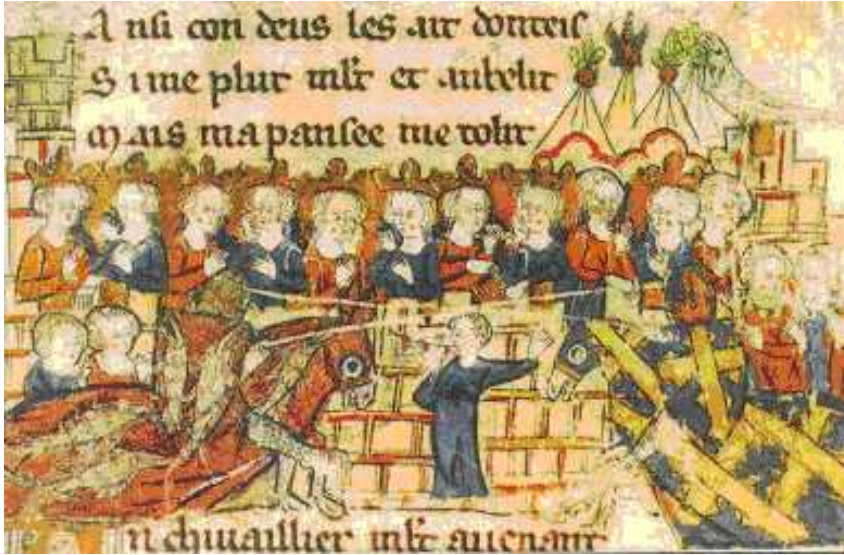 A nsi con deus les ait
S i me plut mlt et anbelit
M ais ma pansee me tolit
n chiuaillier mlt auenant